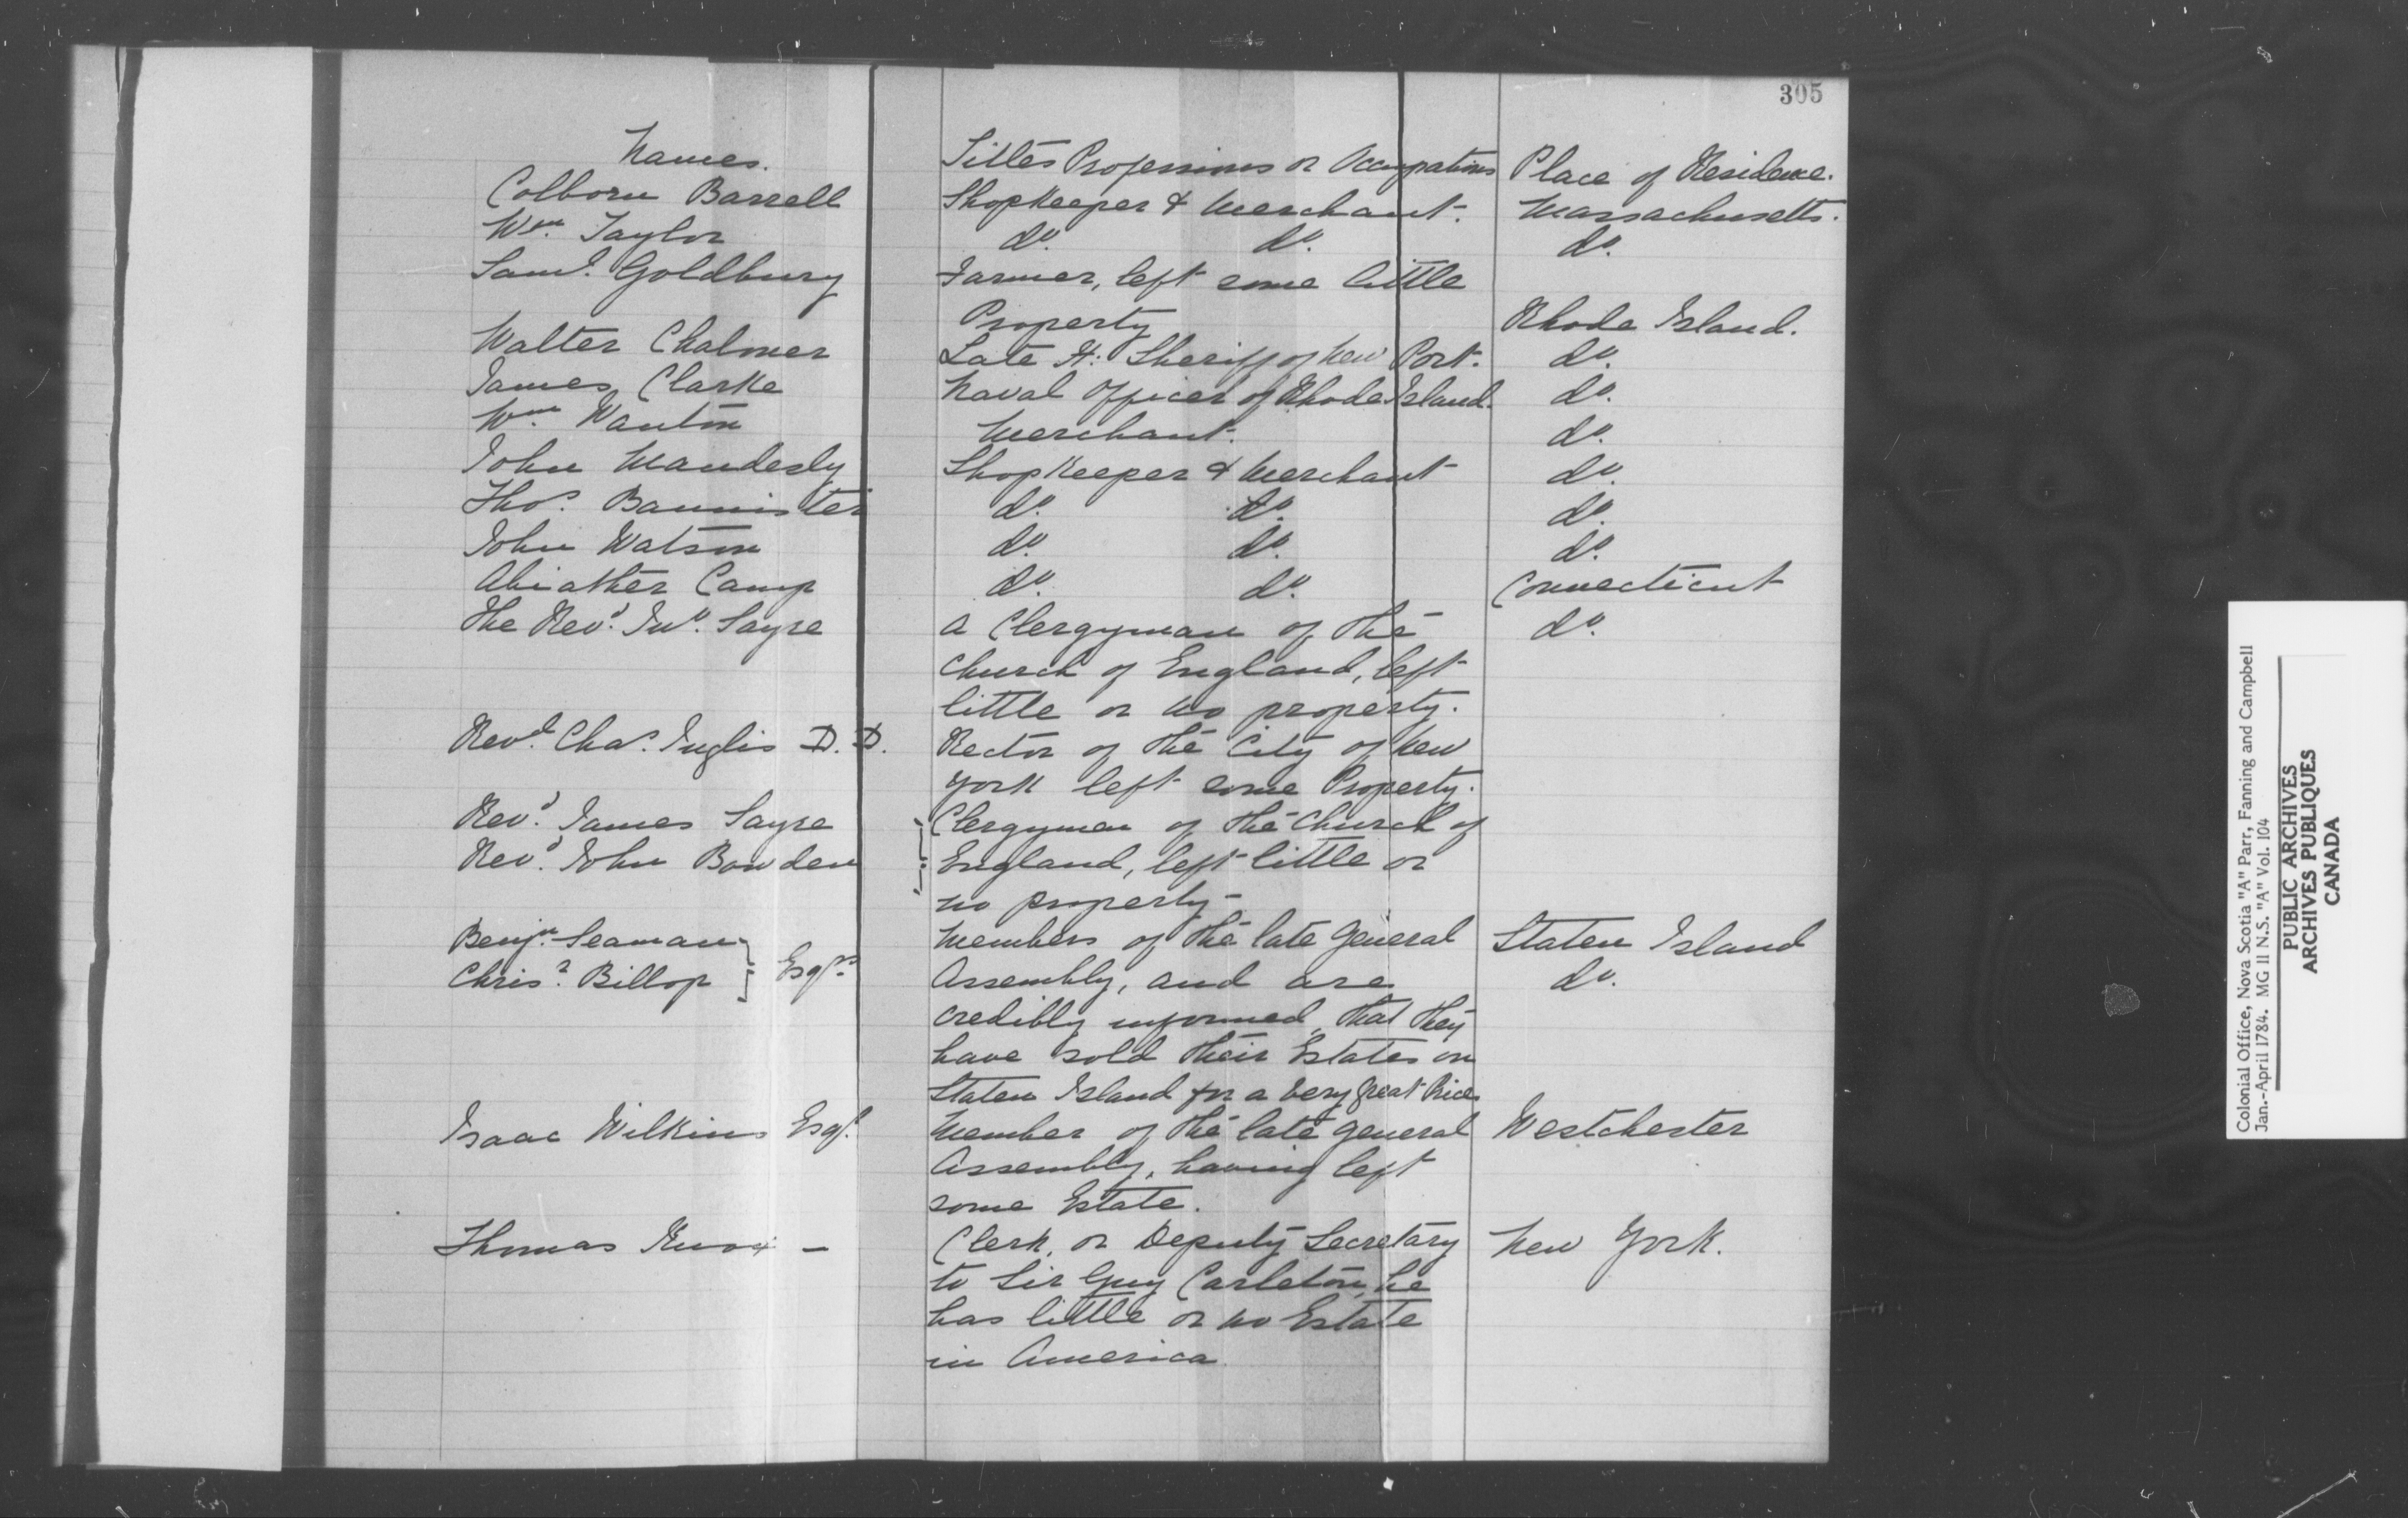 305
Names. Titles Professions or Occupations Place of Residence.
Colborn Barrell Shopkeeper & Merchant. Massachusetts.
Wm. Taylor do. do. do.
Saml. Goldbury Farmer, left some little
Property Rhode Island.
Walter Chalmer Late H: Sheriff of New Port. do.
James Clarke Naval Officer of Rhode Island. do.
Wm. Wanton Merchant. do.
John Maudesly Shopkeeper & Merchant do.
Thos. Bannister do. do. do.
John Watson do. do. do.
Abiather Camp do. do. Connecticut
The Revd. Jno. Sayre a Clergyman of the do.
Church of England, left
little or no property.
Revd. Chas. Inglis D. D. Rector of the City of New
York left some Property.
Revd. James Sayre Clergymen of the Church of
Revd. John Bowden England, left little or
no property-
Benjn. Seaman Members of the late General Staten Island
Chrisr. Billop Esqrs. Assembly, and are do.
credibly informed, that they
have sold their Estates on
Staten Island for a very great Price
Isaac Wilkins Esqr. Member of the late general Westchester
Assembly, having left
some Estate.
Thomas Knox - Clerk, or Deputy Secretary New York.
to Sir Guy Carleton, he
has little or no Estate
in America.
Colonial Office, Nova Scotia "A" Parr, Fanning and Campbell
Jan.-April 1784. MG 11 N.S. "A" Vol. 104
PUBLIC ARCHIVES
ARCHIVES PUBLIQUES
CANADA